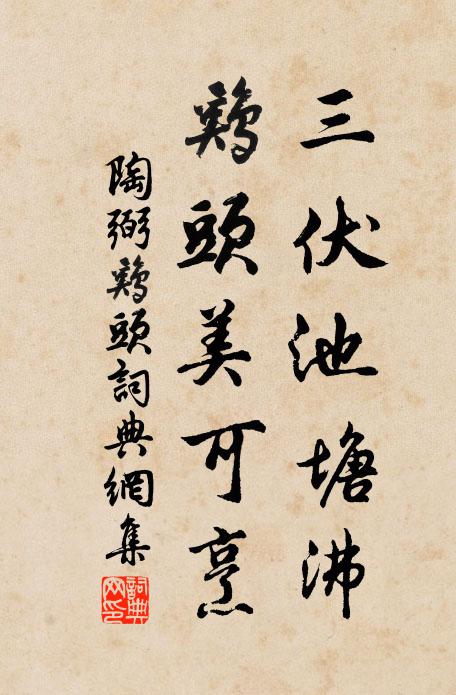 三伏池塘沸
鷄頭美可烹
陶弼鷄頭詞典網集
詞典网印